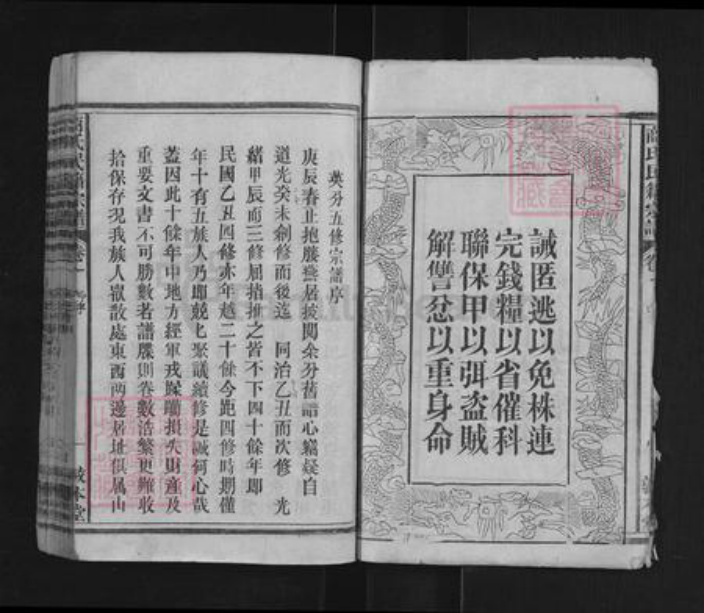 誡匿逃以免株連
完錢糧以省催科
聯保甲以弭盜賊
解讐忿以重身命
英分五修宗譜序
庚辰春正抱膝燕居披閱余分舊譜心竊疑自
道光癸未創修而後迄 同治乙丑而次修 光
緒甲辰而三修屈指推之皆不下四十餘年即
民國乙丑四修亦年越二十餘今距四修時期僅
年十有五族人乃即兢兢聚議續修是誠何心哉
蓋因此十餘年中地方經軍戎蹂躪損失財產及
重要文書不可勝數若譜牒則卷數浩繁更難收
拾保存况我族人嶽散處東西兩邊居址俱属山
敦本堂